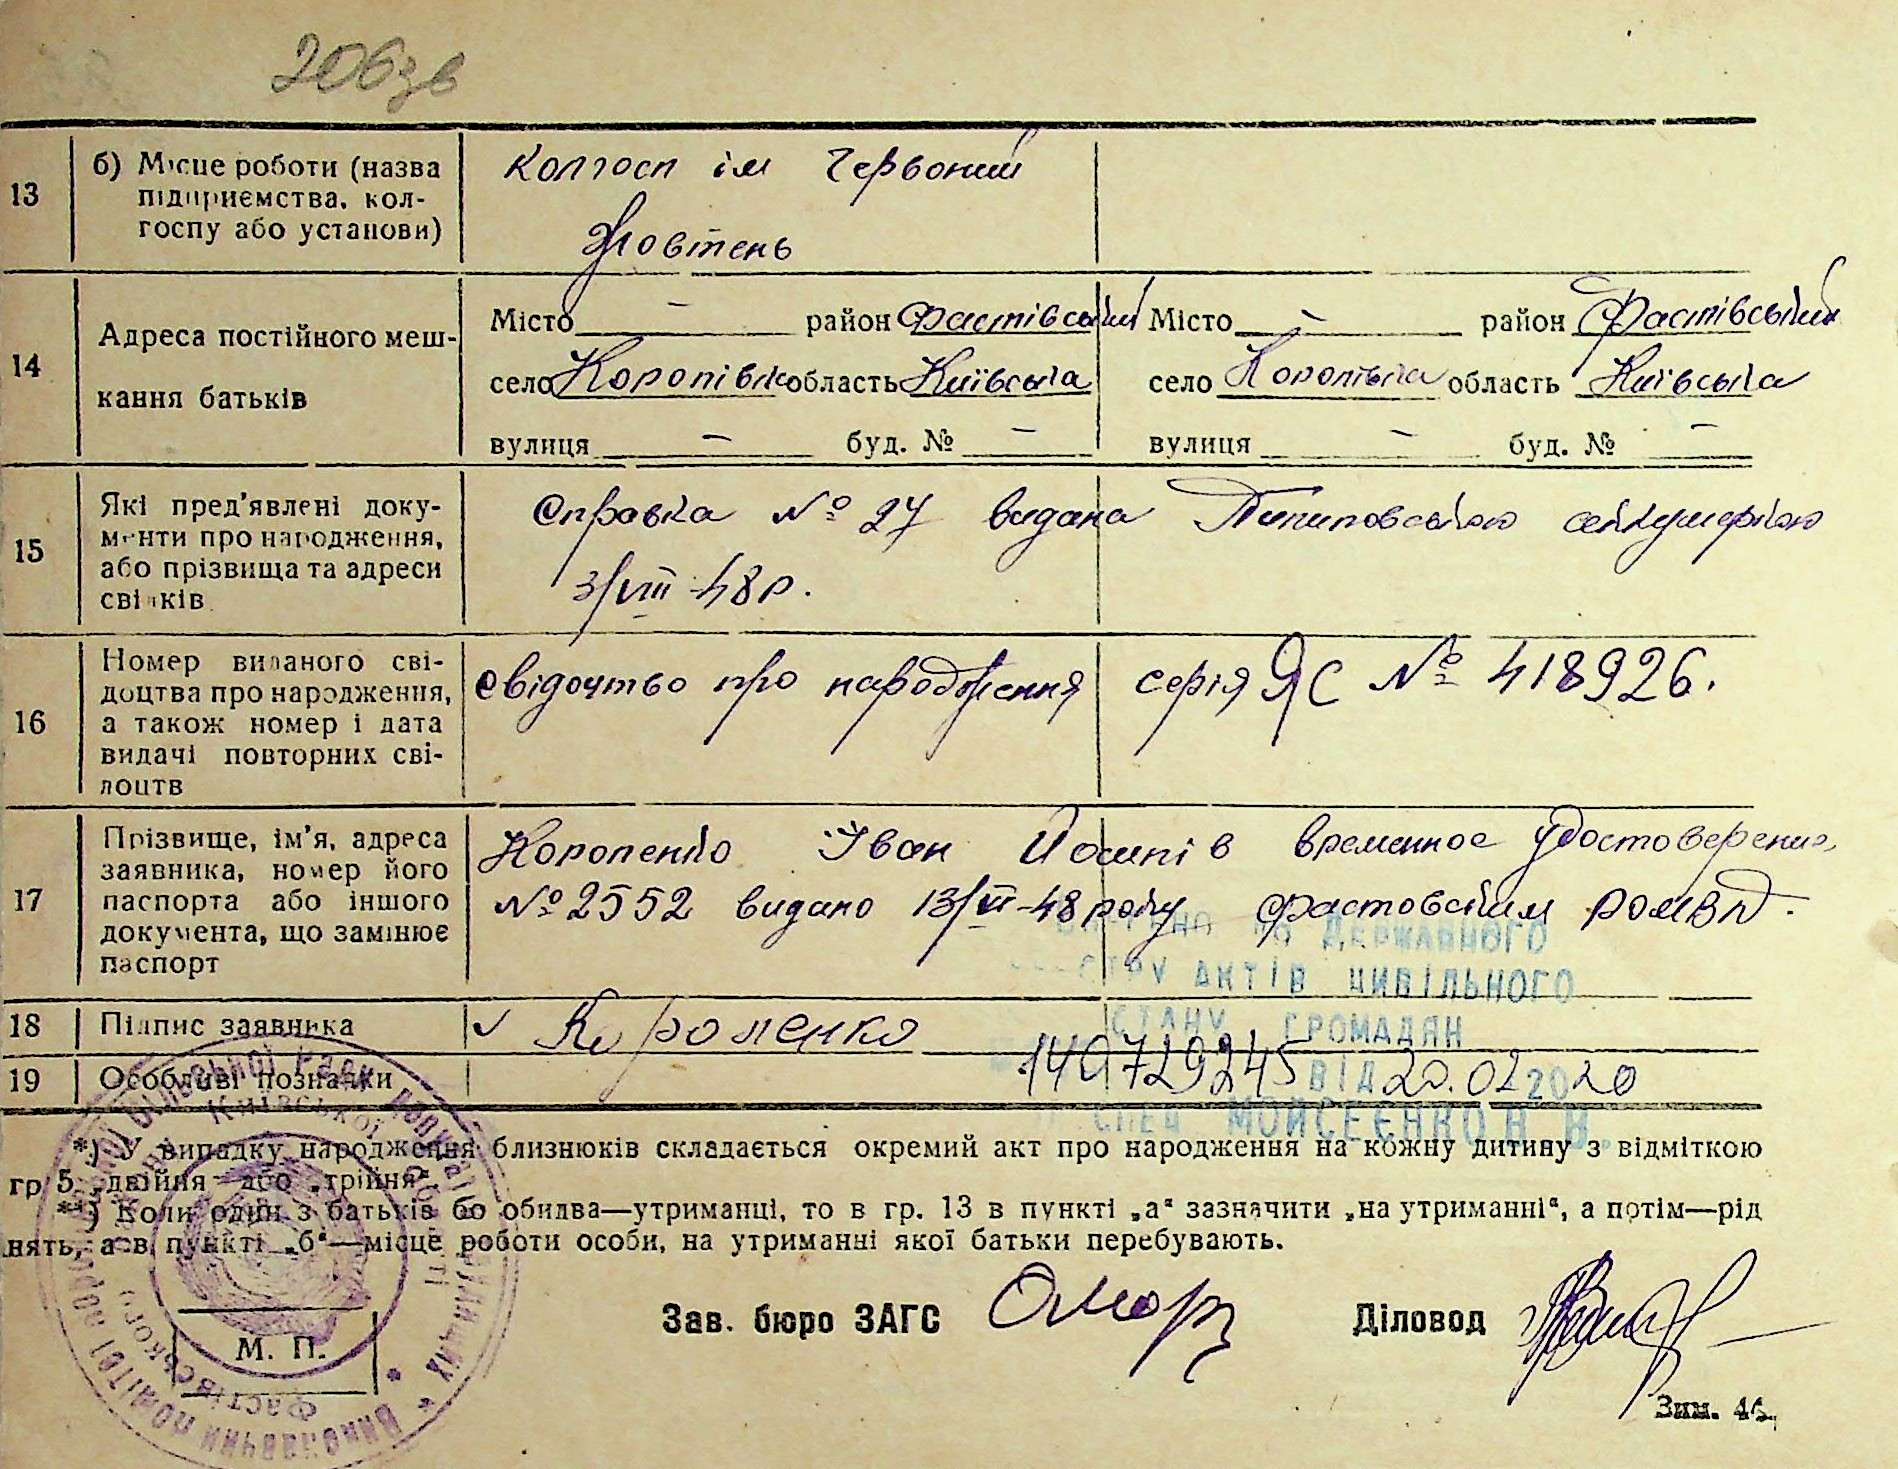 206зв
13
б) Місце роботи (назва підприємства, колгоспу або установи)
колгосп ім Червоний
Жовтень
14
Адреса постійного мешкання батьків
Місто — район Фастівський
село Коропівка область Київська
вулиця — буд. № —
Місто — район Фастівський
село Коропівка область Київська
вулиця — буд. № —
15
Які пред'явлені документи про народження, або прізвища та адреси свідків
Справка № 27 видана
3/VIII-48р.
16
Номер виданого свідоцтва про народження, а також номер і дата видачі повторних свідоцтв
свідоцтво про народження серія ЯС № 418926.
17
Прізвище, ім'я, адреса заявника, номер його паспорта або іншого документа, що замінює паспорт
Короленко Іван временное удостоверение
№ 2552 видано 13/VII-48 року Фастовським РОМВД.
ДЕРЖАВНОГО
АКТІВ ЦИВІЛЬНОГО
СТАНУ ГРОМАДЯН
18
Підпис заявника
✓ Короленко
19
Особливі познадки
140729245 ВІД 20.02 2020
МОЙСЕЄНКО Н В.
*) У випадку народження близнюків складається окремий акт про народження на кожну дитину з відміткою
гр 5 „двійня“ або „трійня“.
**) Коли один з батьків бо обидва—утриманці, то в гр. 13 в пункті „а“ зазначити „на утриманні“, а потім—рід
нять, а в пункті „б“—місце роботи особи, на утриманні якої батьки перебувають.
М. П.
Зав. бюро ЗАГС
Діловод
Зим. 46